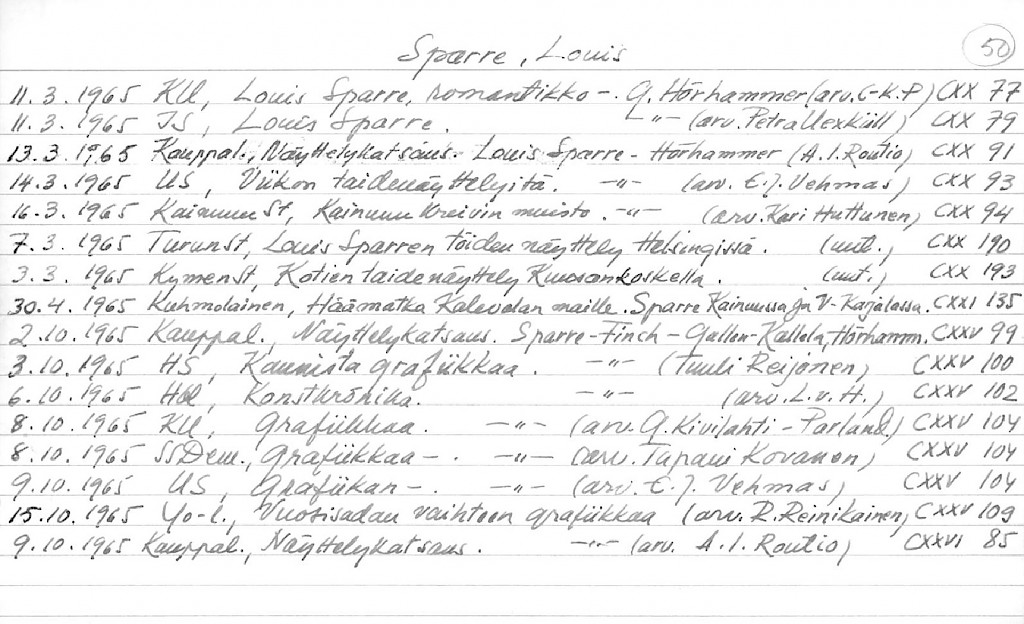 Sparre, Louis
50
11.3.1965 KU, Louis Sparre, romantikko -. G. Hörhammer (arv. G-K.P) CXX 77
11.3.1965 IS, Louis Sparre. -"- (arv. Petra Uexküll) CXX 79
13.3.1965 Kauppal., Näyttelykatsaus. Louis Sparre - Hörhammer (A.I. Routio) CXX 91
14.3.1965 US, Viikon taidenäyttelyitä. -"- (arv. E.J. Vehmas) CXX 93
16.3.1965 Kainuun St, Kainuun kreivin muisto. -"- (arv. Kari Huttunen) CXX 94
7.3.1965 Turun St, Louis Sparren töiden näyttely Helsingissä. (uut.) CXX 190
3.3.1965 Kymen St, Kotien taidenäyttely Kuusankoskella. (uut.) CXX 193
30.4.1965 Kuhmolainen, Häämatka Kalevalan maille. Sparre Kainuussa ja V-Karjalassa. CXXI 135
2.10.1965 Kauppal., Näyttelykatsaus. Sparre-Finch-Gallen-Kallela, Hörhamm. CXXV 99
3.10.1965 HS, Kaunista grafiikkaa. -"- (Tuuli Reijonen) CXXV 100
6.10.1965 Hbl, Konstkrönika. -"- (arv. L.v.H.) CXXV 102
8.10.1965 KU, Grafiikkaa. -"- (arv. G. Kivilahti-Parland) CXXV 104
8.10.1965 SSDem., Grafiikkaa -. -"- (arv. Tapani Kovanen) CXXV 104
9.10.1965 US, Grafiikan -. -"- (arv. E.J. Vehmas) CXXV 104
15.10.1965 Yo-l., Vuosisadan vaihteen grafiikkaa (arv. R. Reinikainen) CXXV 109
9.10.1965 Kauppal., Näyttelykatsaus. -"- (arv. A.I. Routio) CXXVI 85